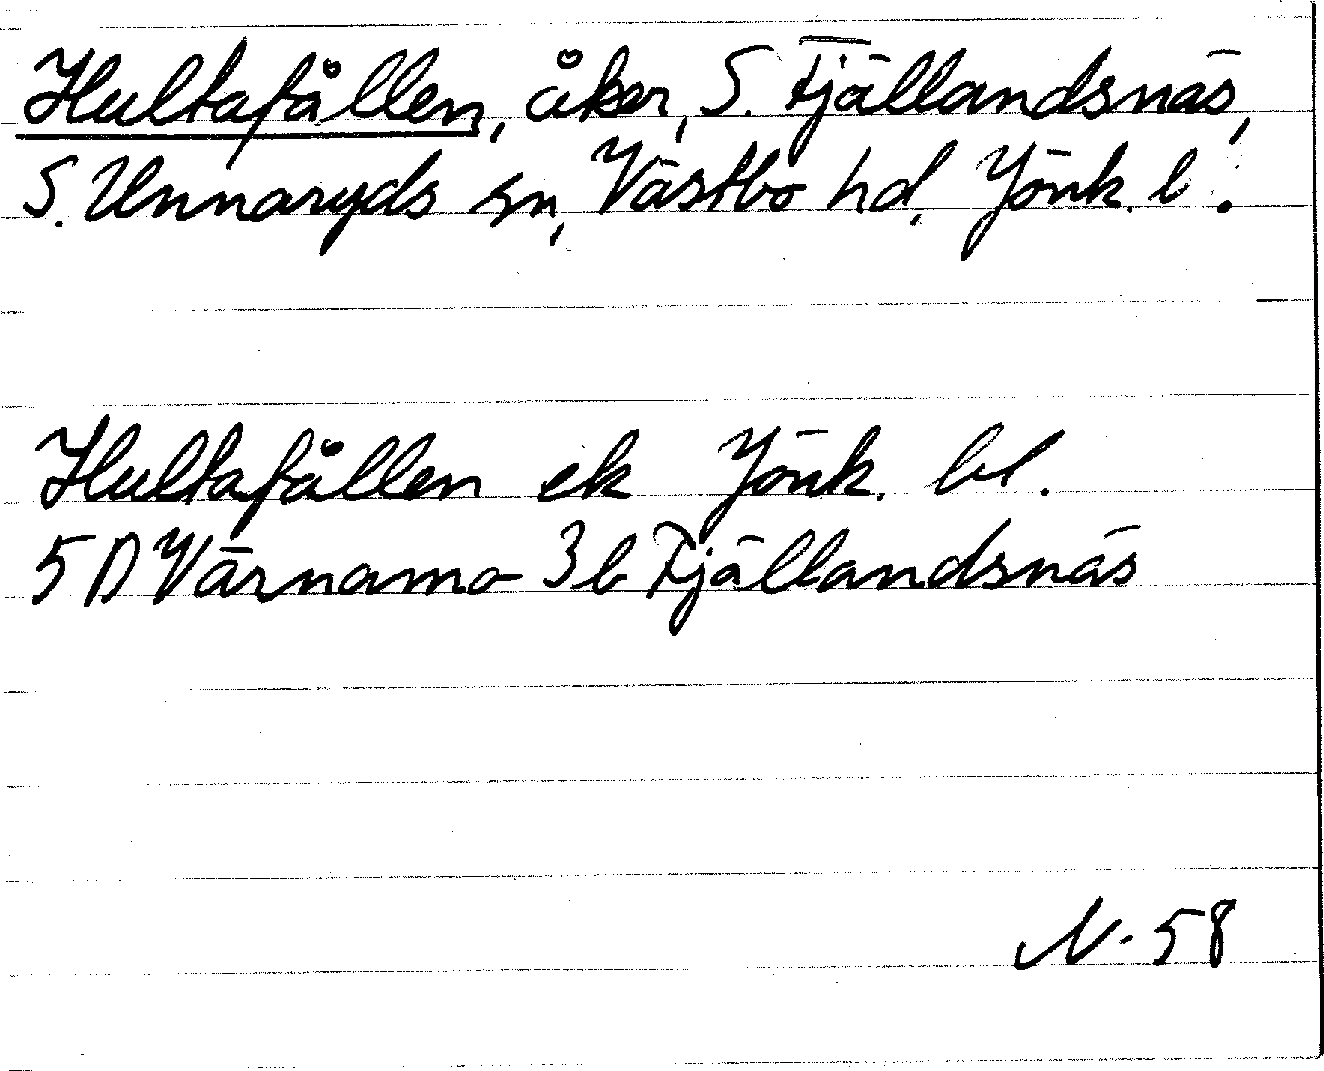 Hultafållen, åker, S. Fjällandsnäs,
S. Unnaryds sn, Västbo hd, Jönk. l.
Hultafållen ek Jönk. bl.
5 D Värnamo 3b Fjällandsnäs
N. 58